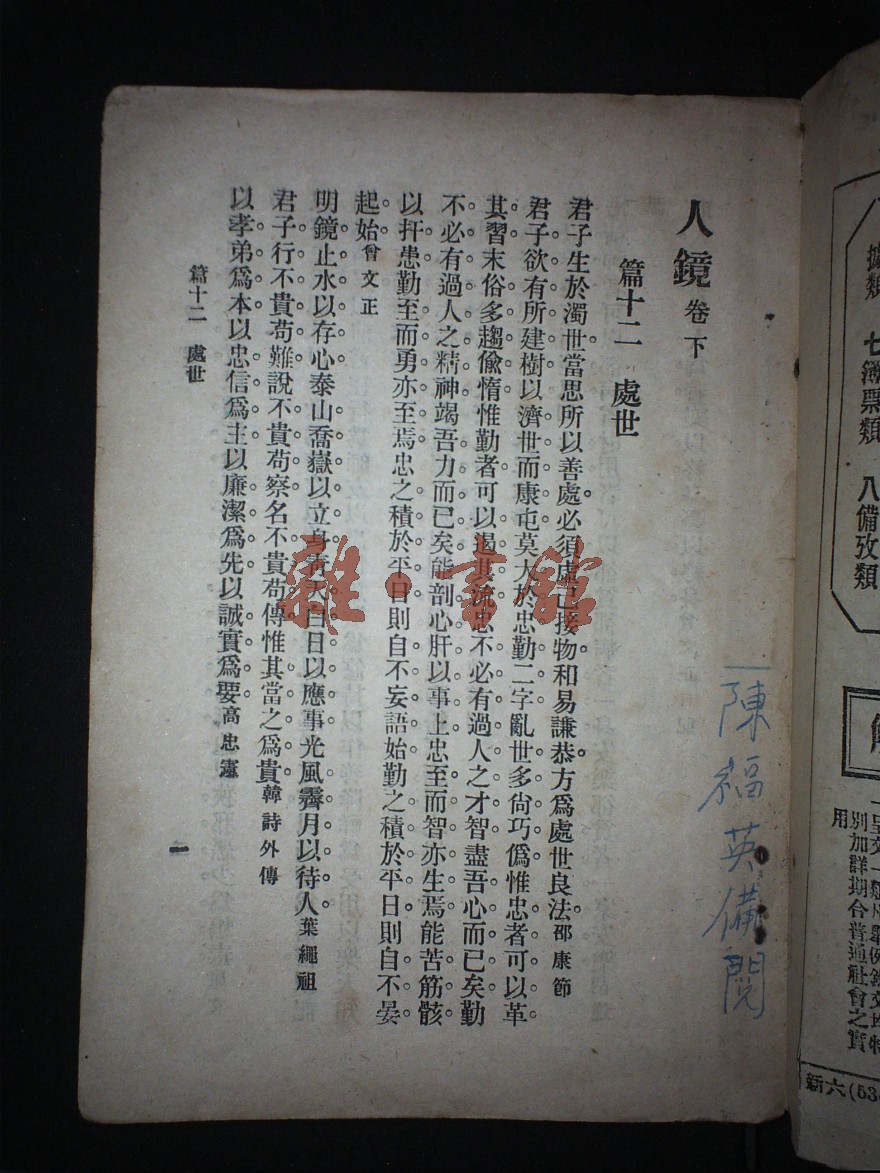 人鏡 卷下
篇十二 處世
君子生於濁世當思所以善處必須虛已接物和易謙恭方爲處世良法邵康節
君子欲有所建樹以濟世而康屯莫大於忠勤二字亂世多尙巧僞惟忠者可以革
其習末俗多趨偸惰惟勤者可以遏其流忠不必有過人之才智盡吾心而已矣勤
不必有過人之精神竭吾力而已矣能剖心肝以事上忠至而智亦生焉能苦筋骸
以扞患勤至而勇亦至焉忠之積於平日則自不妄語始勤之積於平日則自不晏
起始曾文正
明鏡止水以存心泰山喬嶽以立身靑天白日以應事光風霽月以待人葉繩祖
君子行不貴苟難說不貴苟察名不貴苟傳惟其當之爲貴韓詩外傳
以孝弟爲本以忠信爲主以廉潔爲先以誠實爲要高忠憲
篇十二 處世
一
陳福英備閱
雜·書館
據類 七簿票類 八備攷類
別加詳期合普通社會之實
用
新六(53